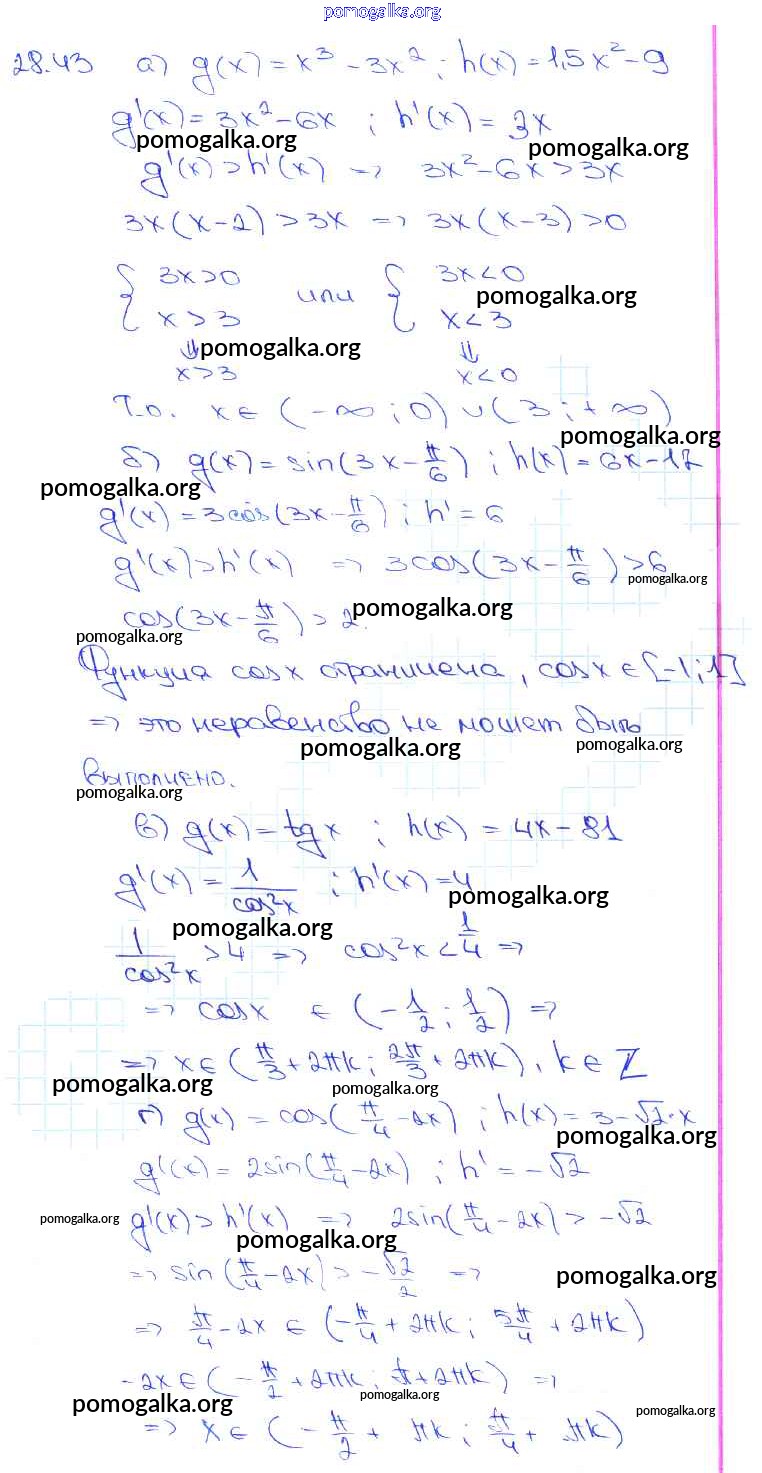 pomogalka.org
28.43 а) g(x) = x³ - 3x² ; h(x) = 1,5x² - 9
g'(x) = 3x² - 6x ; h'(x) = 3x
pomogalka.org pomogalka.org
g'(x) > h'(x) => 3x² - 6x > 3x
3x(x-2) > 3x => 3x(x-3) > 0
{ 3x>0 или { 3x<0
pomogalka.org
x>3 x<3
⇓ pomogalka.org ⇓
x>3 x<0
Т.о. x ∈ (-∞; 0) ∪ (3; +∞)
pomogalka.org
б) g(x) = sin(3x - π/6) ; h(x) = 6x - 17
pomogalka.org
g'(x) = 3cos(3x - π/6) ; h' = 6
g'(x) > h'(x) => 3cos(3x - π/6) > 6
pomogalka.org
cos(3x - π/6) > 2. pomogalka.org
pomogalka.org
Функция cosx ограничена, cosx ∈ [-1; 1]
=> это неравенство не может быть
pomogalka.org pomogalka.org
выполнено.
pomogalka.org
в) g(x) = tgx ; h(x) = 4x - 81
g'(x) = 1/cos²x ; h'(x) = 4
pomogalka.org
pomogalka.org
1/cos²x > 4 => cos²x < 1/4 =>
=> cosx ∈ (-1/2; 1/2) =>
=> x ∈ (π/3 + 2πk; 2π/3 + 2πk), k ∈ Z
pomogalka.org pomogalka.org
г) g(x) = cos(π/4 - 2x) ; h(x) = 3 - √2·x
pomogalka.org
g'(x) = 2sin(π/4 - 2x) ; h' = -√2
pomogalka.org g'(x) > h'(x) => 2sin(π/4 - 2x) > -√2
pomogalka.org
=> sin(π/4 - 2x) > -√2/2 =>
pomogalka.org
=> π/4 - 2x ∈ (-π/4 + 2πk; 5π/4 + 2πk)
-2x ∈ (-π/2 + 2πk; π + 2πk) =>
pomogalka.org pomogalka.org
pomogalka.org
=> x ∈ (-π/2 + πk; π/4 + πk)